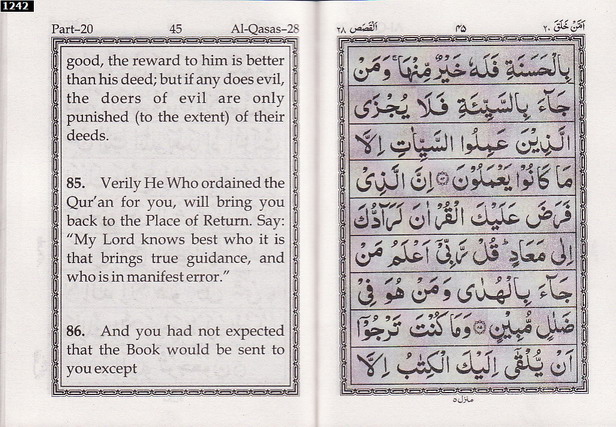 1242
Part–20 45 Al-Qasas–28
good, the reward to him is better
than his deed; but if any does evil,
the doers of evil are only
punished (to the extent) of their
deeds.
85. Verily He Who ordained the
Qur’an for you, will bring you
back to the Place of Return. Say:
“My Lord knows best who it is
that brings true guidance, and
who is in manifest error.”
86. And you had not expected
that the Book would be sent to
you except
اَمَّنْ خَلَقَ ٢٠ ۴۵ اَلْقَصَص ٢٨
بِالْحَسَنَةِ فَلَهٗ خَيْرٌ مِّنْهَا ۚ وَمَنْ
جَآءَ بِالسَّيِّئَةِ فَلَا يُجْزَى
الَّذِيْنَ عَمِلُوا السَّيِّاٰتِ اِلَّا
مَا كَانُوْا يَعْمَلُوْنَ ۝ اِنَّ الَّذِيْ
فَرَضَ عَلَيْكَ الْقُرْاٰنَ لَرَآدُّكَ
اِلٰى مَعَادٍ ؕ قُلْ رَّبِّيْٓ اَعْلَمُ مَنْ
جَآءَ بِالْهُدٰى وَمَنْ هُوَ فِيْ
ضَلٰلٍ مُّبِيْنٍ ۝ وَمَا كُنْتَ تَرْجُوْٓا
اَنْ يُّلْقٰٓى اِلَيْكَ الْكِتٰبُ اِلَّا
منزل ٥